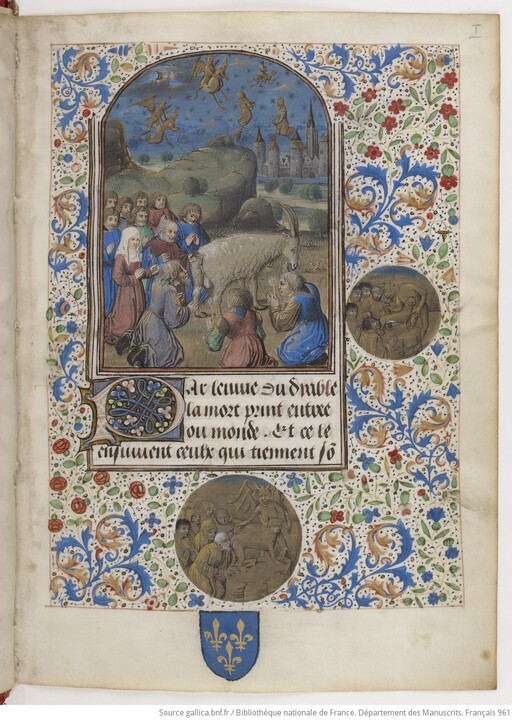 I
Par lenuie du dyable
la mort print entree
ou monde. Et ce le
ensuiuent ceulx qui tiennent sō
Source gallica.bnf.fr / Bibliothèque nationale de France. Département des Manuscrits. Français 961